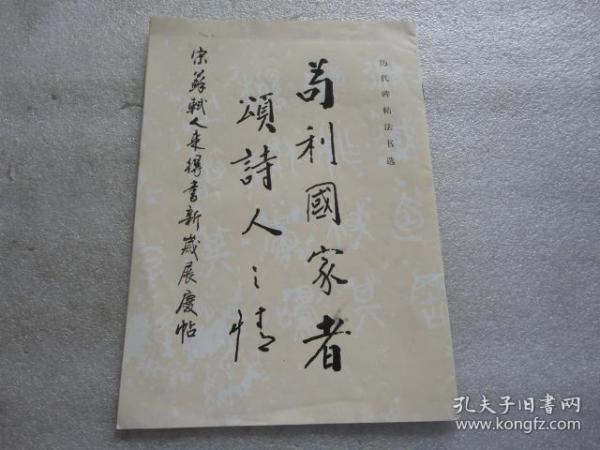 历代碑帖法书选
苟利國家者
頌詩人之情
宋蘇軾人来得書新歲展慶帖
孔夫子旧书网
www.kongfz.com